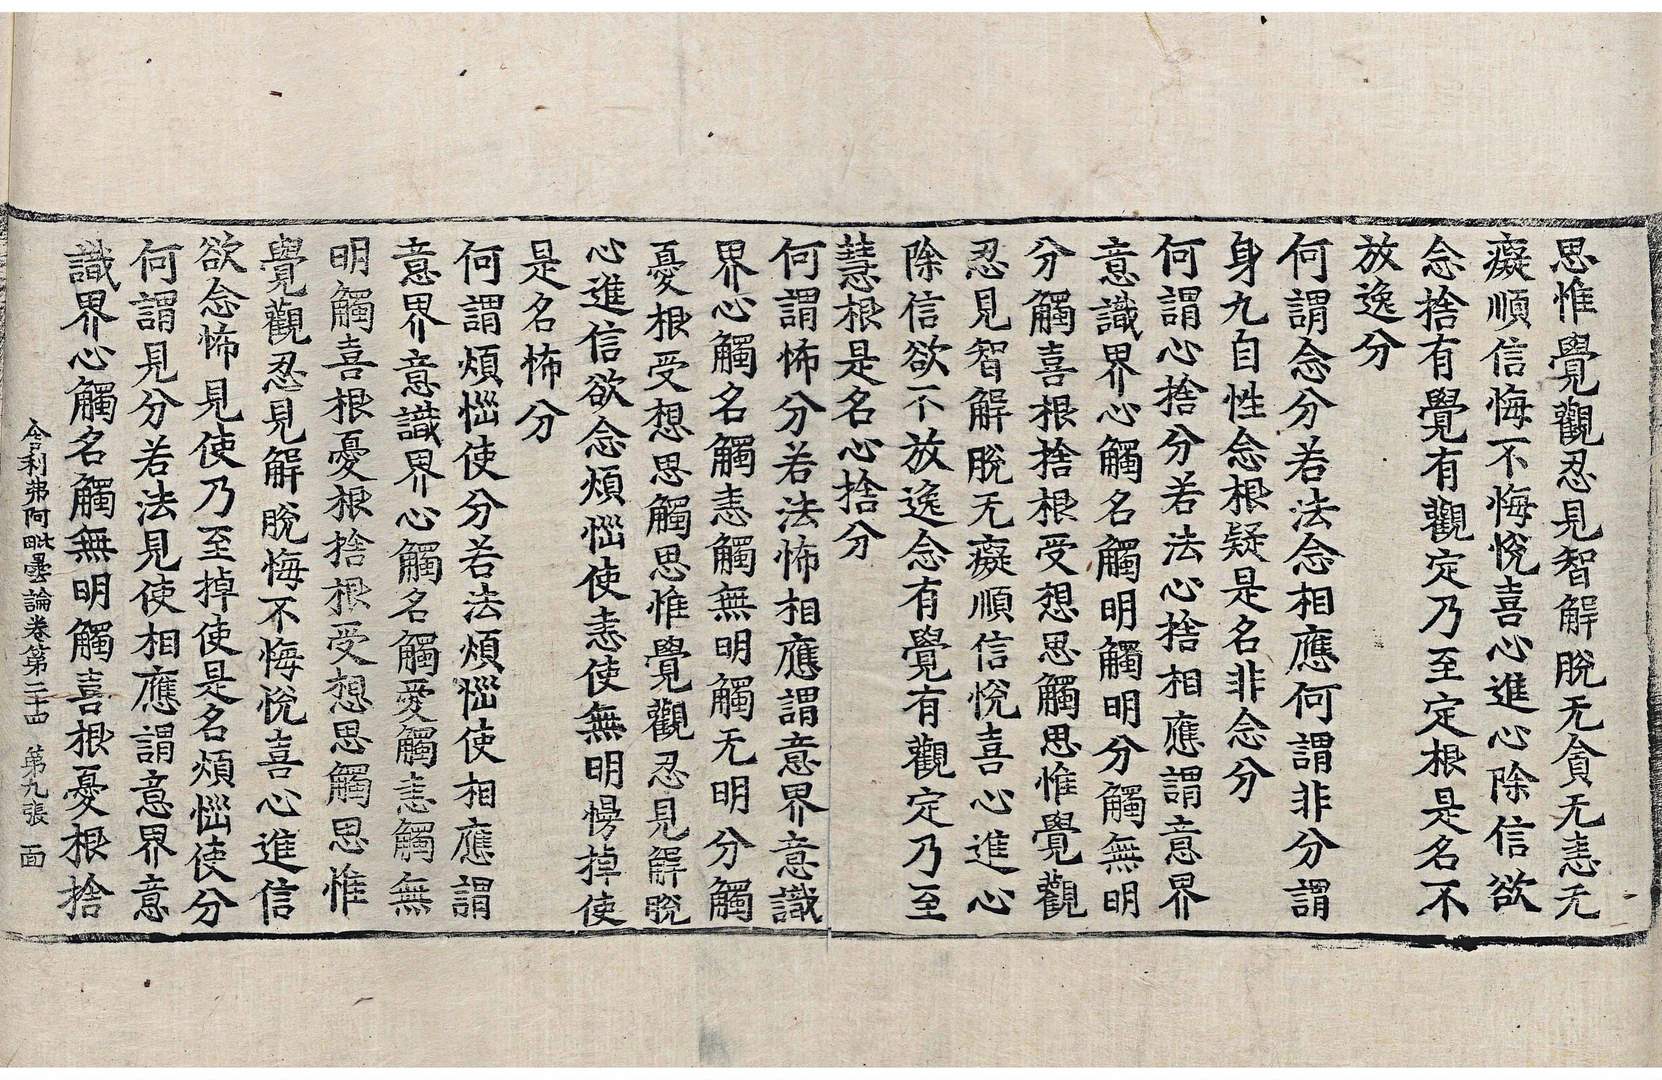 思惟覺觀忍見智解脫无貪无恚无
癡順信悔不悔悅喜心進心除信欲
念捨有覺有觀定乃至定根是名不
放逸分
何謂念分若法念相應何謂非分謂
身九自性念根疑是名非念分
何謂心捨分若法心捨相應謂意界
意識界心觸名觸明觸明分觸無明
分觸喜根捨根受想思觸思惟覺觀
忍見智解脫无癡順信悅喜心進心
除信欲不放逸念有覺有觀定乃至
慧根是名心捨分
何謂怖分若法怖相應謂意界意識
界心觸名觸恚觸無明觸无明分觸
憂根受想思觸思惟覺觀忍見解脫
心進信欲念煩惱使恚使無明㥬掉使
是名怖分
何謂煩惱使分若法煩惱使相應謂
意界意識界心觸名觸愛觸恚觸無
明觸喜根憂根捨根受想思觸思惟
覺觀忍見解脫悔不悔悅喜心進信
欲念怖見使乃至掉使是名煩惱使分
何謂見分若法見使相應謂意界意
識界心觸名觸無明觸喜根憂根捨
舍利弗阿毗曇論卷第二十四 第九張 面